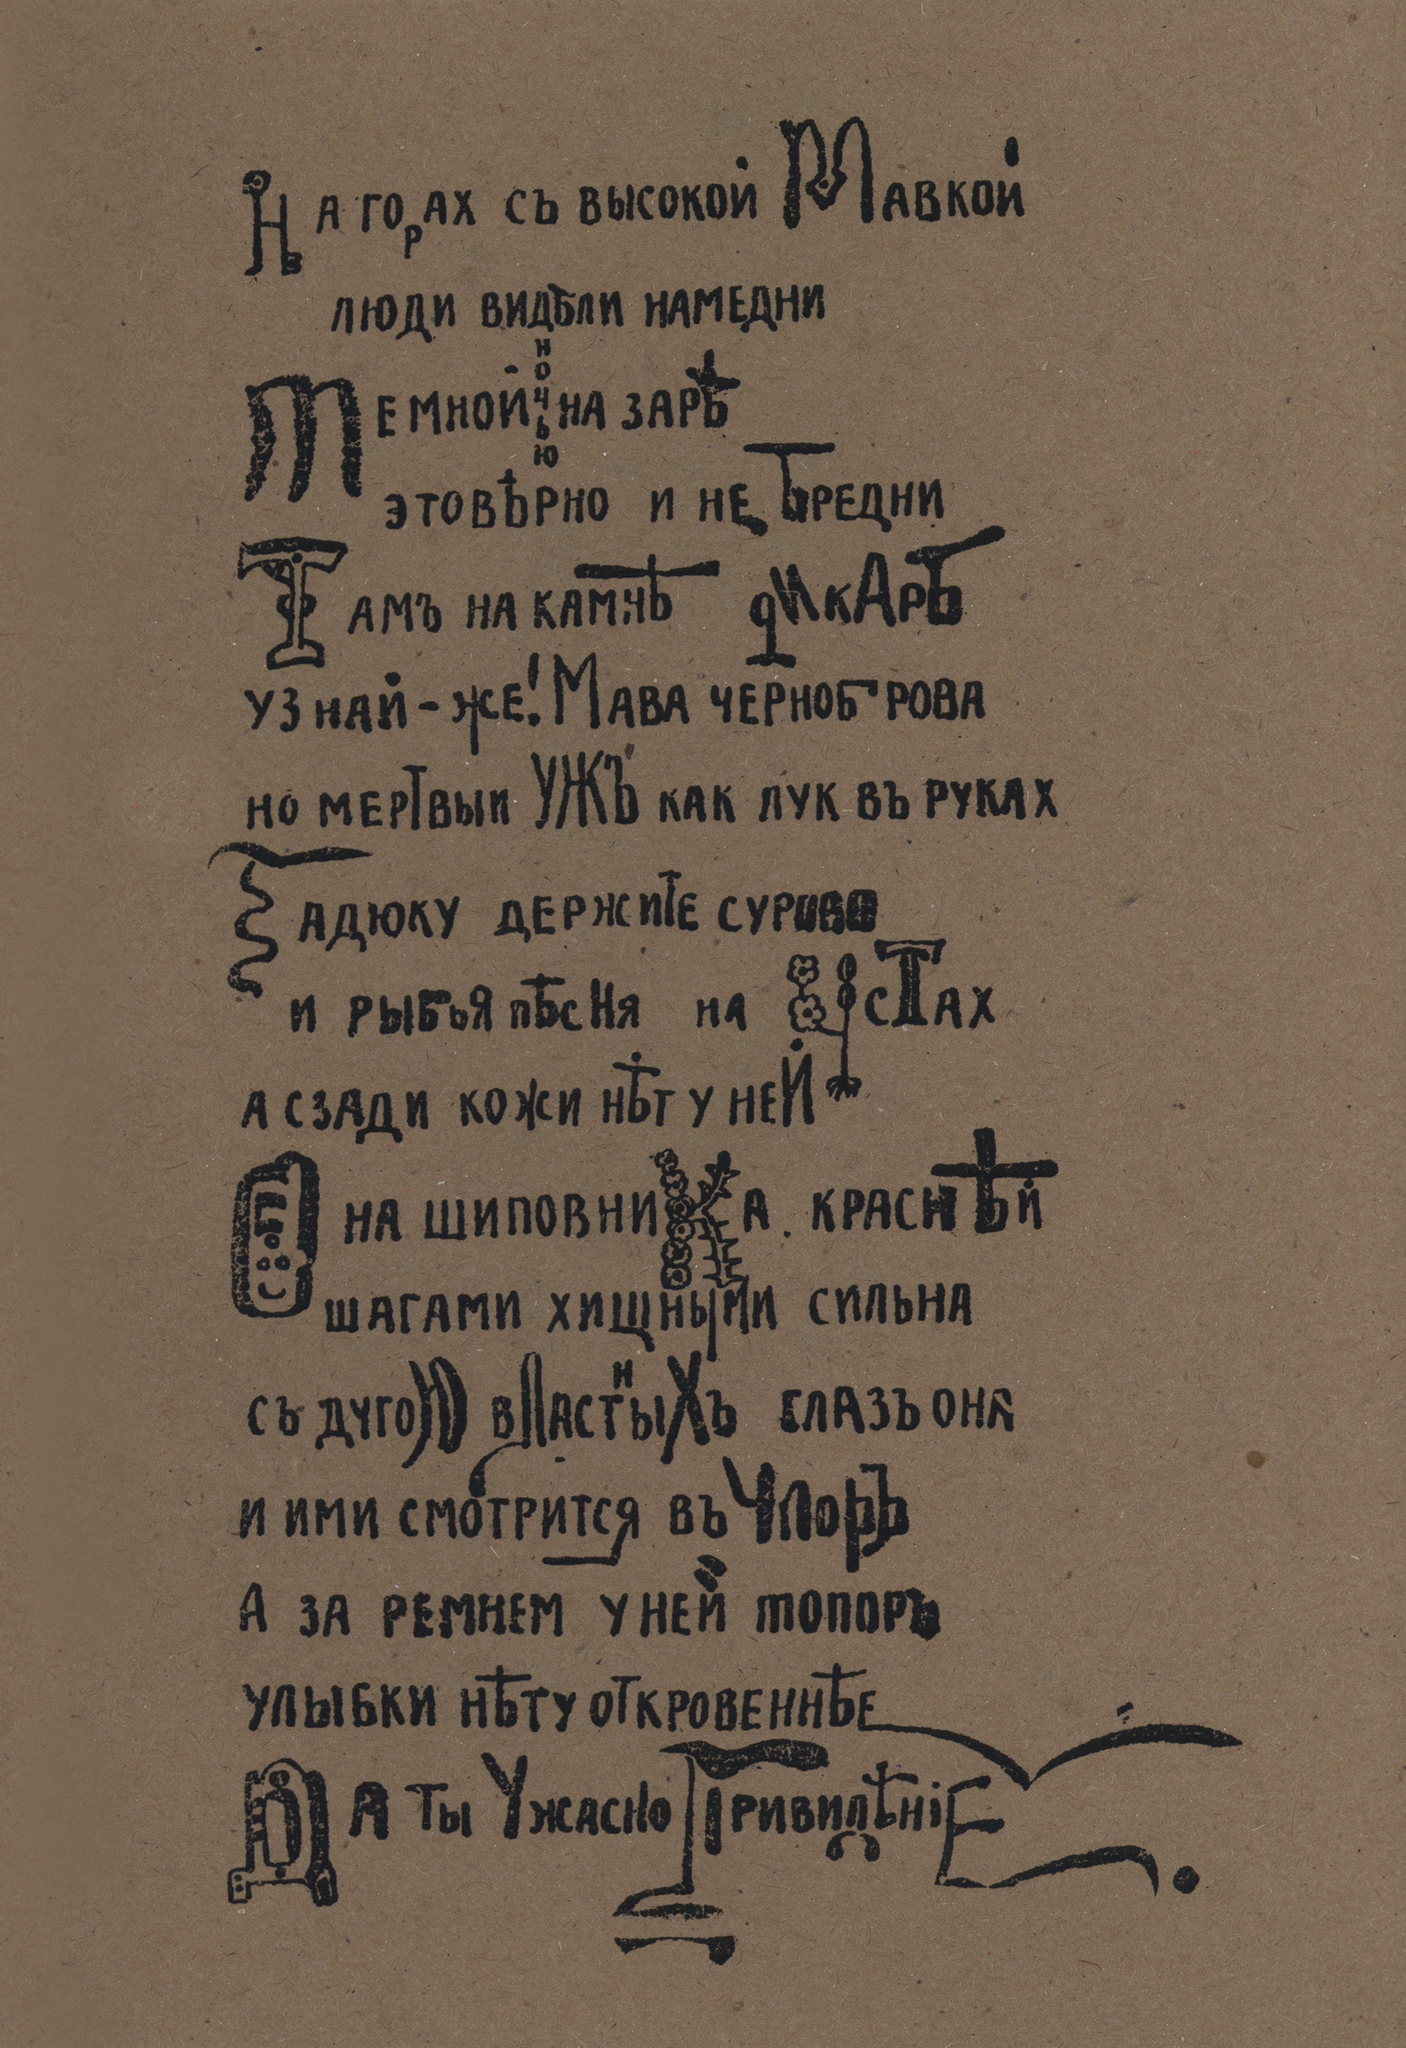 На горах съ высокой Мавкой
люди видѣли намедни
Темной ночью на зарѣ
это вѣрно и не бредни
Тамъ на камнѣ дикарь
узнай-же! Мава черноброва
но мертвыи УЖЪ как лук въ руках
Гадюку держите сурово
и рыбья пѣсня на устах
а сзади кожи нѣт у ней
Она шиповника краснѣй
шагами хищными сильна
съ дугою властныхъ глазъ она
и ими смотрится въ упоръ
А за ремнем у ней топоръ
улыбки нѣту откровеннѣе
Да ты ужасно Привидѣніе.